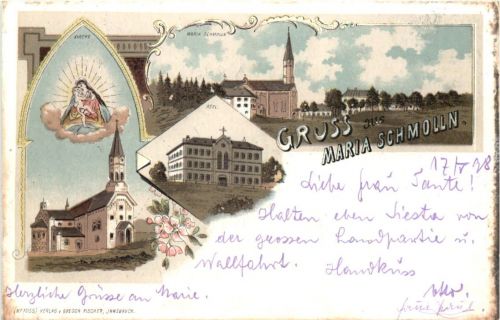 KIRCHE
MARIA SCHMOLLN
ASYL
GRUSS AUS
MARIA SCHMOLLN.
17/V 98
Liebe Frau Tante!
Halten eben Siesta von
der grossen Landpartie u.
Wallfahrt. Handkuss
Otto.
Herzliche Grüsse an Marie.
VERLAG v. GREGOR FISCHER, INNSBRUCK.